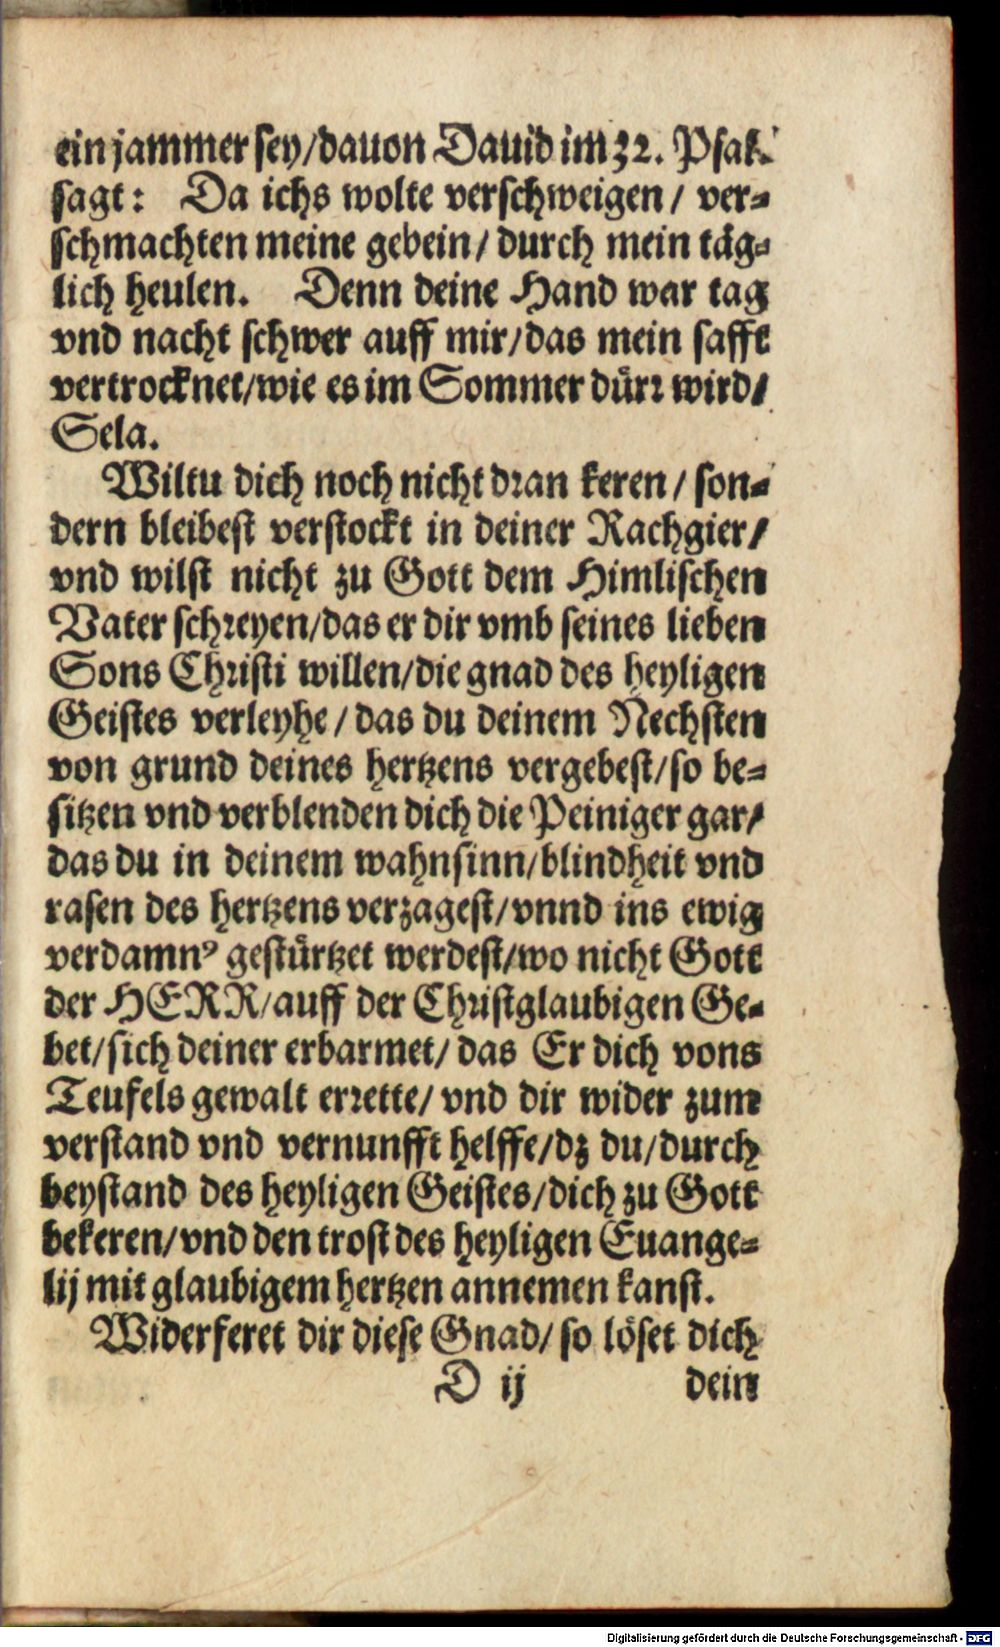 ein jammer sey/dauon Dauid im 32. Psal.
sagt: Da ichs wolte verschweigen/ ver⸗
schmachten meine gebein/ durch mein täg⸗
lich heulen. Denn deine Hand war tag
vnd nacht schwer auff mir/das mein safft
vertrocknet/wie es im Sommer dürr wird/
Sela.
Wiltu dich noch nicht dran keren/ son⸗
dern bleibest verstockt in deiner Rachgier/
vnd wilst nicht zu Gott dem Himlischen
Vater schreyen/das er dir vmb seines lieben
Sons Christi willen/die gnad des heyligen
Geistes verleyhe/ das du deinem Nechsten
von grund deines hertzens vergebest/so be⸗
sitzen vnd verblenden dich die Peiniger gar/
das du in deinem wahnsinn/blindheit vnd
rasen des hertzens verzagest/vnnd ins ewig
verdamnꝰ gestürtzet werdest/wo nicht Gott
der HERR/auff der Christglaubigen Ge⸗
bet/sich deiner erbarmet/ das Er dich vons
Teufels gewalt errette/ vnd dir wider zum
verstand vnd vernunfft helffe/dz du/durch
beystand des heyligen Geistes/dich zu Gott
bekeren/vnd den trost des heyligen Euange⸗
lij mit glaubigem hertzen annemen kanst.
Widerferet dir diese Gnad/ so löset dich
D ij dein
Digitalisierung gefördert durch die Deutsche Forschungsgemeinschaft - DFG